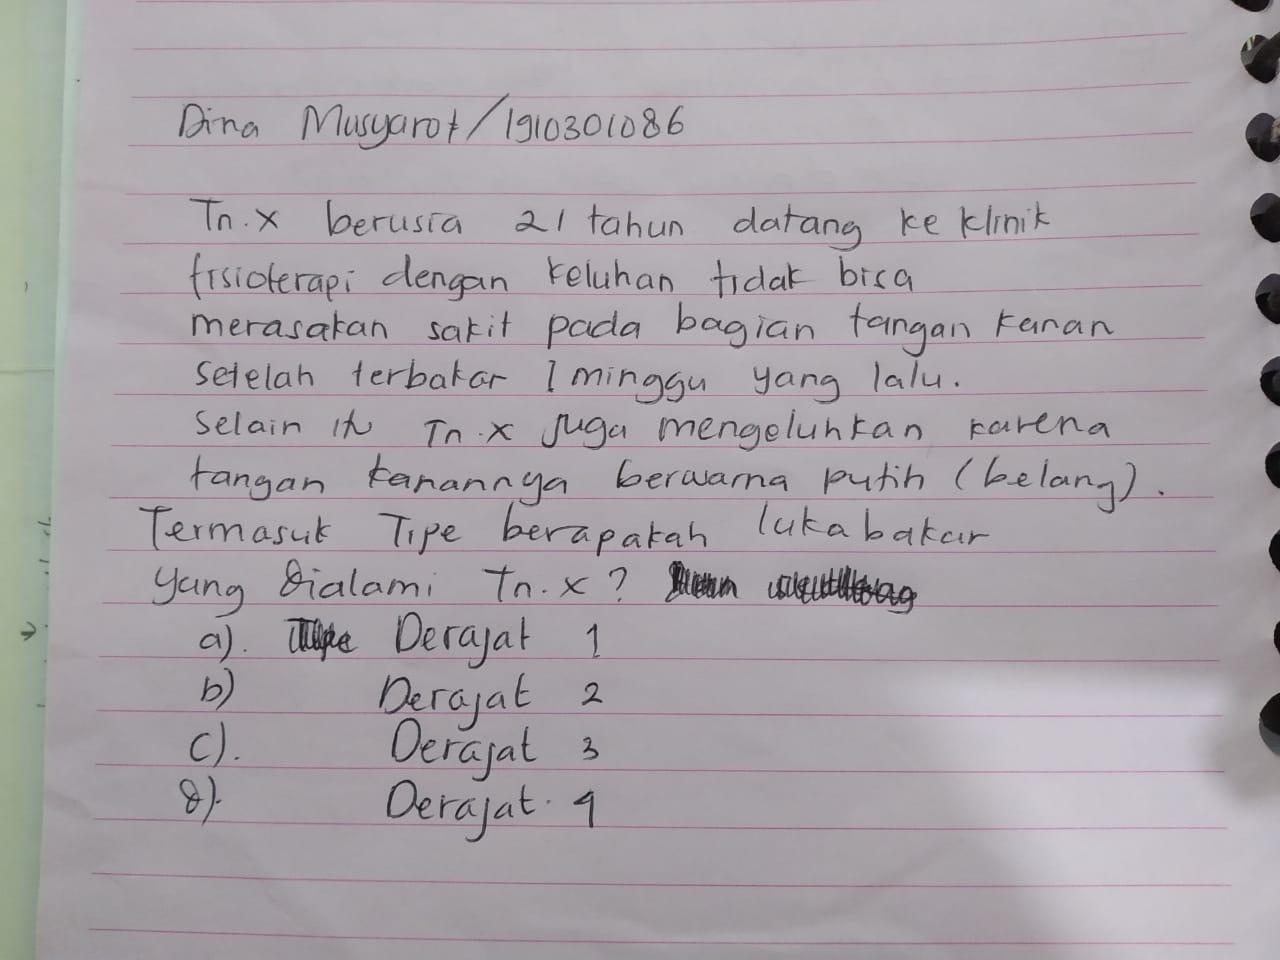 Dina Musyarof/1910301086
Tn.X berusia 21 tahun datang ke klinik
fisioterapi dengan keluhan tidak bisa
merasakan sakit pada bagian tangan kanan
setelah terbakar 1 minggu yang lalu.
Selain itu Tn.X juga mengeluhkan karena
tangan kanannya berwarna putih (belang).
Termasuk Tipe berapakah luka bakar
yang Dialami Tn.X?
a). Derajat 1
b) Derajat 2
c). Derajat 3
d). Derajat. 4